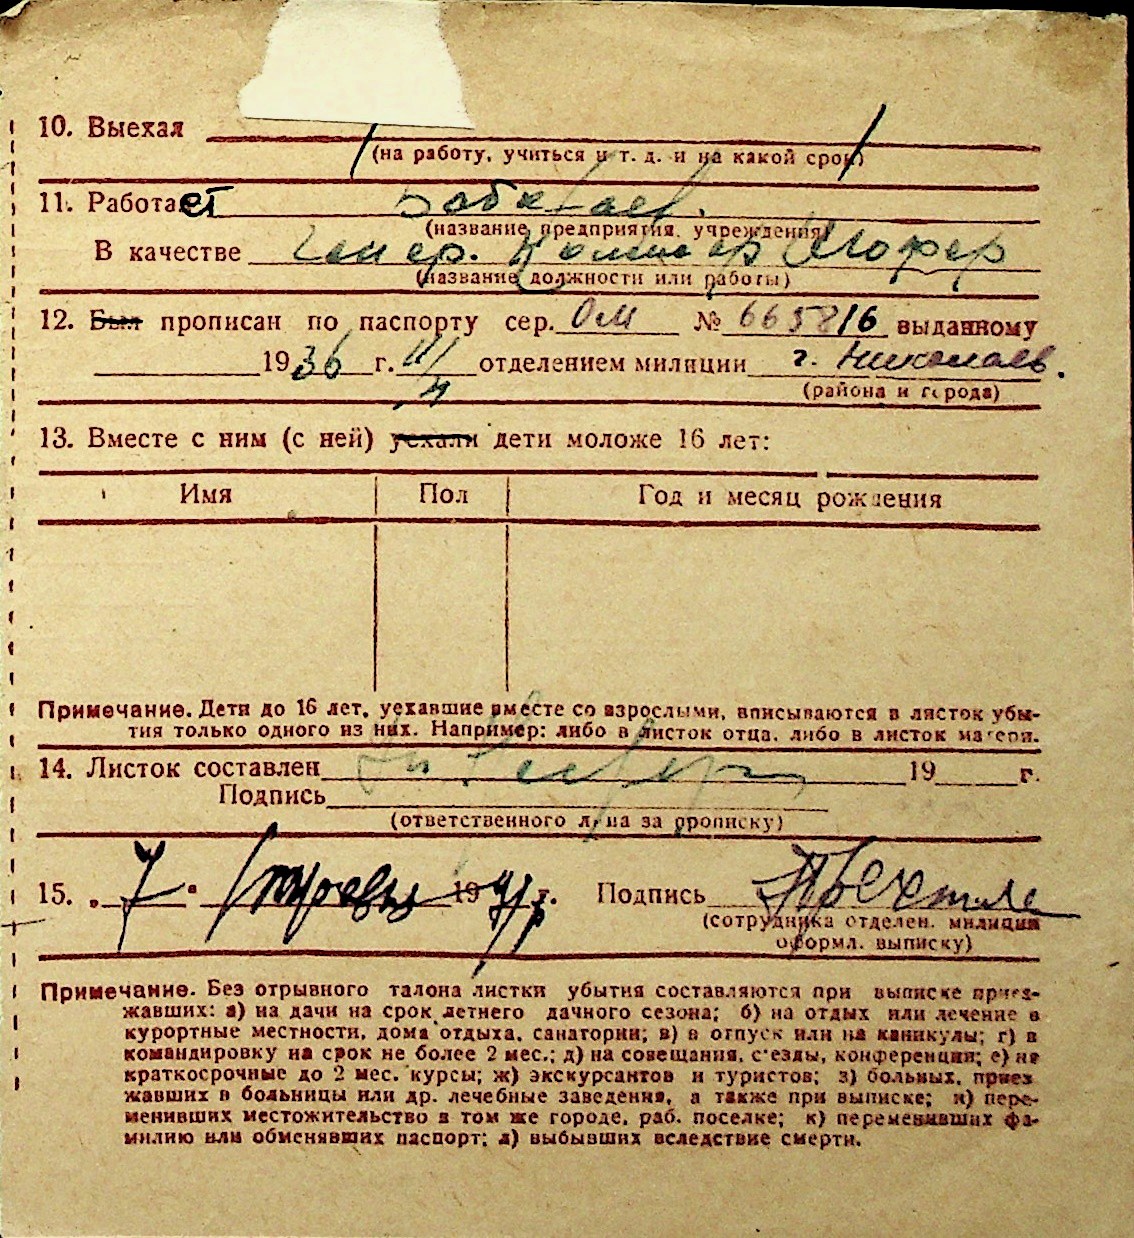 10. Выехал
(на работу, учиться и т. д. и на какой срок)
11. Работает
(название предприятия, учреждения)
В качестве Шофер
(название должности или работы)
12. Был прописан по паспорту сер. ОМ № 665816 выданному
1936 г. отделением милиции г. Николаев.
(района и города)
13. Вместе с ним (с ней) уехали дети моложе 16 лет:
Имя Пол Год и месяц рождения
Примечание. Дети до 16 лет, уехавшие вместе со взрослыми, вписываются в листок убы-
тия только одного из них. Например: либо в листок отца, либо в листок матери.
14. Листок составлен 19 г.
Подпись
(ответственного лица за прописку)
15. „7" 19 41 г. Подпись
(сотрудника отделен. милиции
оформл. выписку)
Примечание. Без отрывного талона листки убытия составляются при выписке приез-
жавших: а) на дачи на срок летнего дачного сезона; б) на отдых или лечение в
курортные местности, дома отдыха, санатории; в) в отпуск или на каникулы; г) в
командировку на срок не более 2 мес.; д) на совещания, с'езды, конференции; е) на
краткосрочные до 2 мес. курсы; ж) экскурсантов и туристов; з) больных, приез
жавших в больницы или др. лечебные заведения, а также при выписке; и) пере-
менивших местожительство в том же городе, раб. поселке; к) переменивших фа-
милию или обменявших паспорт; л) выбывших вследствие смерти.